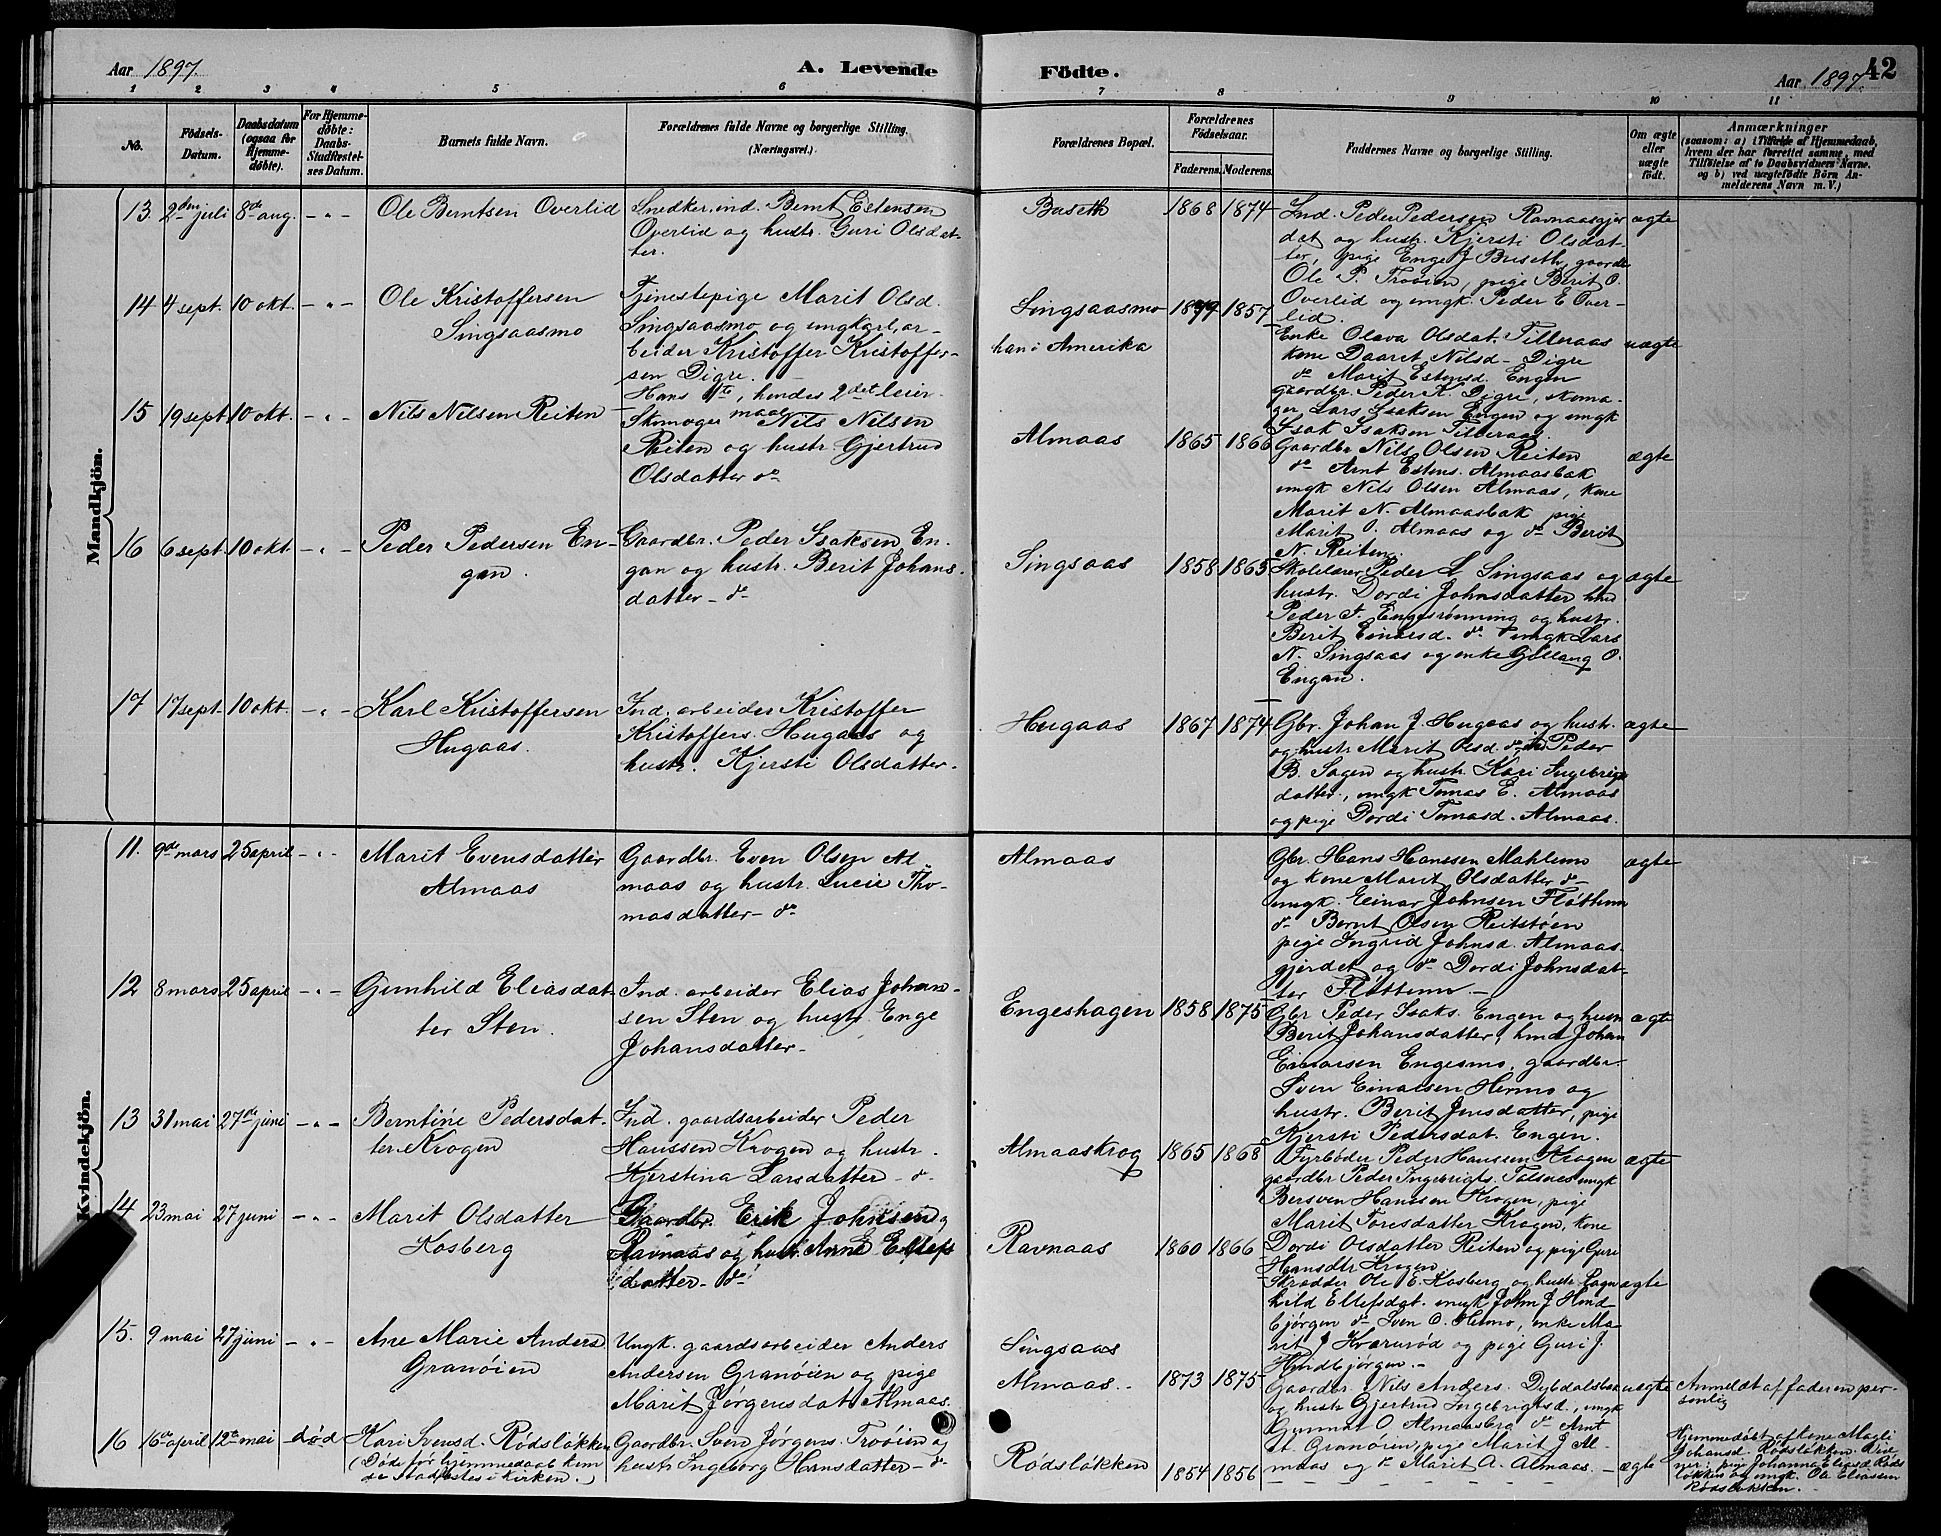 Aar 1897.
A. Levende
Födte.
Aar 1897.
42
1 2 3 4 5 6 7 8 9 10 11
No.
Födsels-
Datum.
Daabsdatum
(ogsaa for
Hjemme-
døbte).
For Hjemme-
døbte:
Daabs-
Stadfæstel-
ses Datum.
Barnets fulde Navn.
Forældrenes fulde Navne og borgerlige Stilling.
(Næringsvei.)
Forældrenes Bopæl.
Forældrenes
Födselsaar.
Faderens.
Moderens.
Faddernes Navne og borgerlige Stilling.
Om ægte
eller
uægte
født.
Anmærkninger
(saasom: a) i Tilfælde af Hjemmedaab,
hvem der har forrettet samme, med
Tilföielse af to Daabsvidners Navne.
og b) ved uægtefödte Börn An-
melderens Navn m. V.)
Mandkjön.
13. 2den juli 8de aug. - " - Ole Berntsen Overlid
Snedker, ind. Bernt Estensen
Overlid og hustr. Guri Olsdat-
ter.
Buseth 1868 1874
Ind. Peder Pedersen Ravnaasgjer
det og hustr. Kjersti Olsdat-
ter, pige Enge J Buseth, gaardb
Ole P. Trøøien, pige Berit O.
Overlid og ungk. Peder E Over-
lid.
ægte
14 4 sept. 10 okt. - " - Ole Kristoffersen
Singsaasmo
Tjenestepige Marit Olsd.
Singsaasmo og ungkarl, ar-
beider Kristoffer Kristoffer-
sen Digre.
Hans 1ste, hendes 2det leier-
maal
Singsaasmo
han i Amerika
1857
Enke Olava Olsdat. Tilleraas
kone Daaret Nilsd - Digre
do Marit Estensd. Engen
gaardbr. Peder K. Digre, skoma-
ger Lars Isaksen Engen og ungk
Isak Isaksen Tilleraas.
uægte
15 19 sept 10 okt. - " - Nils Nilsen Reiten
Skomager Nils Nilsen
Reiten og hustr. Gjertrud
Olsdatter do
Almaas 1865 1866
Gaardbr Nils Olsen Reiten
do Arnt Estens. Almaasbak
ungk Nils Olsen Almaas, kone
Marit N. Almaasbak, pige
Marit O. Almaas og do Berit
N. Reiten.
ægte
16 6 sept 10 okt. - " - Peder Pedersen En-
gan.
Gaardbr. Peder Isaksen En-
gan og hustr. Berit Johans-
datter - do
Singsaas 1858 1865
Skolelærer Peder L Singsaas og
hustr. Dordi Johnsdatter hmd
Peder J. Engesrønning og hustr.
Berit Einarsd. do ungk Lars
N. Singsaas og enke Gollaug O.
Engan.
ægte
17 17 sept. 10 okt. - " - Karl Kristoffersen
Hugaas.
Ind. arbeider Kristoffer
Kristoffers. Hugaas og
hustr. Kjersti Olsdatter.
Hugaas 1867 1874
Gbr. Johan J. Hugaas og hust.
og hustr Marit Olsd. do, Peder
B. Sagen og hustr. Kari Ingebrigts
datter, ungk Tomas E. Almaas
og pige Dordi Tomasd. Almaas.
ægte
Kvindekjön.
11. 9de mars 25 april - " - Marit Evensdatter
Almaas
Gaardbr. Even Olsen Al-
maas og hustr. Lucie Tho-
masdatter - do
Almaas
Gbr. Hans Hansen Mahlemo
og kone Marit Olsdatter do
ungk. Einar Johnsen Fløttum
do Bernt Olsen Reitstøen
pige Ingrid Johnsd. Almaas-
gjerdet og do Dordi Johnsdat-
ter Fløttum -
ægte
12 8 mars 25 april - " - Gunhild Eliasdat-
ter Sten.
Ind. arbeider Elias Johan-
sen Sten og hustr. Enge
Johansdatter -
Engeshagen 1858 1875
Gbr. Peder Isaks. Engen og hustr
Berit Johansdatter, hmd Johan
Einarsen Engesmo, gaardbr.
Sven Einarsen Hermo og
hustr. Berit Jensdatter, pige
Kjersti Pedersdat. Engen.
ægte
13 31 mai 27de juni - " - Berntine Pedersdat-
ter Krogen
Ind. gaardsarbeider Peder
Hanssen Krogen og hustr.
Kjerstina Larsdatter - do
Almaaskrog 1865 1868
Fyrbøder Peder Hanssen Krogen
gaardbr Peder Ingebrigts. Talsnes ungk
Bersven Hanssen Krogen, pige
Marit Toresdatter Krogen, kone
Dordi Olsdatter Reiten og pige Guri
Hansdtr Krogen
ægte
14 23 mai 27 juni - " - Marit Olsdatter
Kosberg
Gaardbr. Erik Johnsen
Ravnaas og hustr. Anne Ellefs
datter - do
Ravnaas 1860 1866
Skrædder Ole E. Kosberg og hustr. Ragn
hild Ellefsdat. ungk John J Hind
bjørgen do Sven O. Hermo, enke Ma-
rit J Kvernrød og pige Guri J.
Hindbjørgen. -
ægte
15. 9 mai 27 juni - " - Ane Marie Anders
Granøien
Ungk. gaardsarbeider Anders
Andersen Granøien og pige
Marit Jørgensdat. Almaas
Singsaas
Almaas - 1873 1875
Gaardbr. Nils Anders. Dybdalsbak
og hustr Gjertrud Ingebrigtsd., ungk
Gunnar O Almaasbrg do Arnt
A. Granøien, pige Marit J Al-
maas og do Marit A. Almaas. -
uægte
Anmeldt af faderen per-
sonlig
16 16de april 12te mai død Kari Svensd. Rödsløkken
(Døde før hjemmedaab kun
de stadfæstes i kirken.)
Gaardbr. Sven Jørgens. Trøøien og
hustr Ingeborg Hansdatter - do
Rødsløkken 1854 1856
ægte
Hjemmedøbt af kone Magli
Johansd. Rødsløkken. Vid
ner: pige Johanna Eliasd. Røds
løkken og ungk. Ole Eliassen
Rødsløkken. -